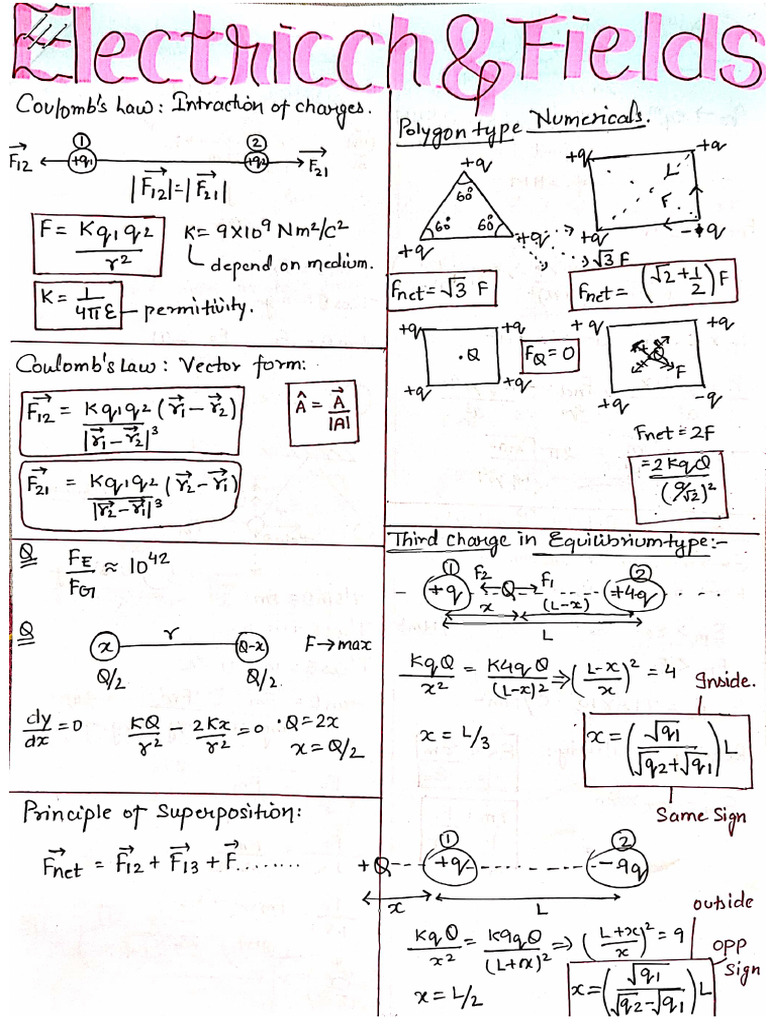 Electricch & Fields
Coulomb's Law: Intraction of charges.
① ②
F⃗12 +q1 +q2 F⃗21
|F⃗12| = |F⃗21|
F = Kq1q2/r² K = 9×10⁹ Nm²/C²
depend on medium.
K = 1/4πε – permitivity.
Coulomb's Law: Vector form:
F⃗12 = Kq1q2 (r⃗1 – r⃗2)/|r⃗1 – r⃗2|³ Â = A⃗/|A|
F⃗21 = Kq1q2 (r⃗2 – r⃗1)/|r⃗2 – r⃗1|³
Q FE/FG ≈ 10⁴²
Q x r Q-x F→max
Q/2 Q/2
dy/dx = 0 KQ/r² – 2Kx/r² = 0 · Q = 2x
x = Q/2
Principle of Superposition:
F⃗net = F⃗12 + F⃗13 + F⃗........
Polygon type Numericals.
+q +q +q
60° L
60° 60° F
+q +q +q -q
√3 F
Fnet = √3 F Fnet = (√2 + 1/2) F
+q +q +q +q
.Q FQ = 0 Q F
+q +q +q -q
Fnet = 2F
= 2KqQ/(a/√2)²
Third charge in Equilibrium type:-
① F2 F1 ②
+q Q +4q
x (L-x)
L
KqQ/x² = K4qQ/(L-x)² ⇒ (L-x/x)² = 4
Inside.
x = L/3 x = (√q1/√q2+√q1) L
Same Sign
① ②
+Q +q -9q
x L
outside
KqQ/x² = K9qQ/(L+x)² ⇒ (L+x/x)² = 9
opp sign
x = L/2 x = (√q1/√q2-√q1) L